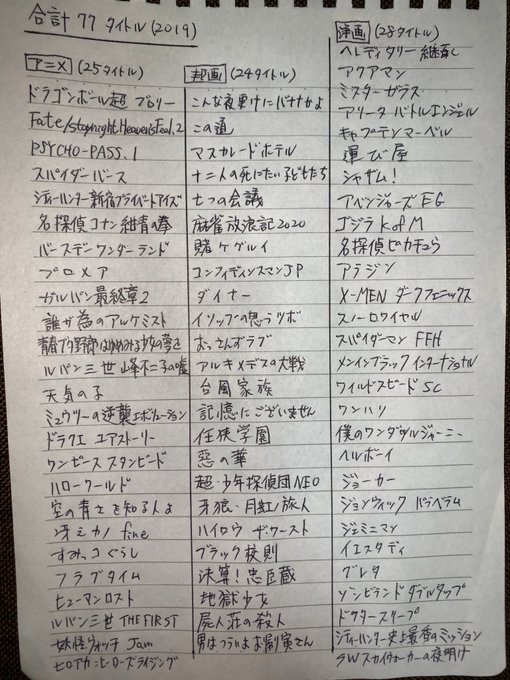 合計 77 タイトル(2019)
アニメ (25タイトル)
ドラゴンボール超 ブロリー
Fate/staynight Heaven'sFeel.2
PSYCHO-PASS.1
スパイダーバース
シティーハンター新宿プライベートアイズ
名探偵コナン 紺青の拳
バースデーワンダーランド
プロメア
ガルパン最終章2
誰が為のアルケミスト
青春ブタ野郎はゆめみる少女の夢を
ルパン三世 峰不二子の嘘
天気の子
ミュウツーの逆襲エボリューション
ドラクエ ユアストーリー
ワンピース スタンピード
ハローワールド
空の青さを知る人よ
冴えカノ fine
すみっコぐらし
フラグタイム
ヒューマンロスト
ルパン三世 THE FIRST
妖怪ウォッチ Jam
ヒロアカ:ヒーローズライジング
邦画 (24タイトル)
こんな夜更けにバナナかよ
この道
マスカレードホテル
十二人の死にたい子どもたち
七つの会議
麻雀放浪記2020
賭ケグルイ
コンフィデンスマンJP
ダイナー
イソップの思うツボ
おっさんずラブ
アルキメデスの大戦
台風家族
記憶にございません
任侠学園
惡の華
超・少年探偵団NEO
牙狼・月虹ノ旅人
ハイロウ ザ・ワースト
ブラック校則
決算!忠臣蔵
地獄少女
屍人荘の殺人
男はつらいよお帰り寅さん
洋画 (28タイトル)
ヘレディタリー 継承
アクアマン
ミスターガラス
アリータ バトルエンジェル
キャプテンマーベル
運び屋
シャザム!
アベンジャーズ EG
ゴジラ KofM
名探偵ピカチュウ
アラジン
X-MEN ダークフェニックス
スノーロワイヤル
スパイダーマン FFH
メンインブラック インターナショナル
ワイルドスピード SC
ワンハリ
僕のワンダフルジャーニー
ヘルボーイ
ジョーカー
ジョンウィック パラベラム
ジェミニマン
イエスタデイ
グレタ
ゾンビランド ダブルタップ
ドクタースリープ
シティーハンター史上最香のミッション
SWスカイウォーカーの夜明け